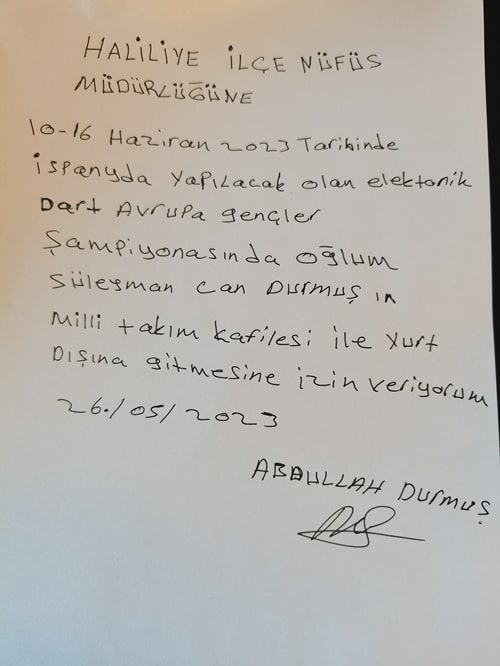 HALİLİYE İLÇE NÜFÜS
MÜDÜRLÜĞÜNE
10-16 Haziran 2023 Tarihinde
İspanyda yapılacak olan elektonik
Dart Avrupa gençler
Şampiyonasında oğlum
Süleyman Can Durmuş ın
Milli takım kafilesi ile Yurt
Dışına gitmesine izin veriyorum
26./05/2023
ABDULLAH Durmuş